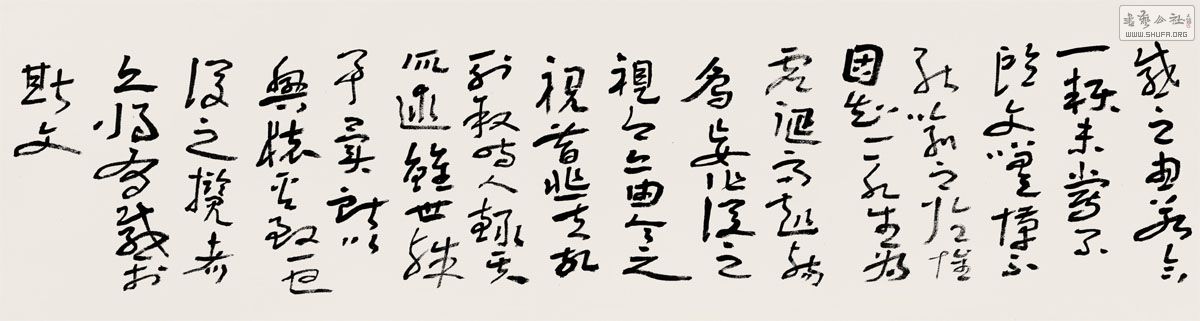 感之由若合
一契未嘗不
臨文嗟悼不
能喻之於懷
固知一死生為
虛誕齊彭殤
為妄作後之
視今亦由今之
視昔悲夫故
列敘時人錄其
所述雖世殊
事異所以
興懷其致一也
後之攬者
亦將有感於
斯文
書藝公社
WWW.SHUFA.ORG